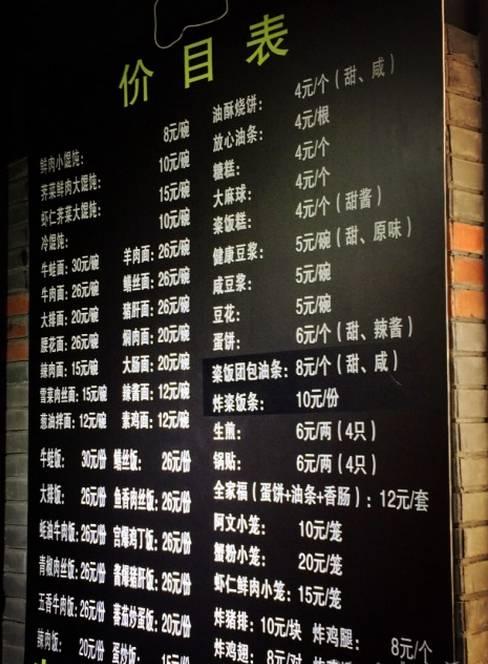 价目表
鲜肉小馄饨： 8元/碗
荠菜鲜肉大馄饨： 10元/碗
虾仁荠菜大馄饨： 15元/碗
冷馄饨： 10元/碗
牛蛙面：30元/碗 羊肉面：26元/碗
牛肉面：26元/碗 鳝丝面：26元/碗
大排面：20元/碗 猪肝面：26元/碗
腰花面：26元/碗 焖肉面：20元/碗
辣肉面：15元/碗 大肠面：20元/碗
雪菜肉丝面：15元/碗 辣酱面：12元/碗
葱油拌面：12元/碗 素鸡面：12元/碗
牛蛙饭： 30元/份 鳝丝饭： 26元/份
大排饭： 26元/份 鱼香肉丝饭：26元/份
蚝油牛肉饭：26元/份 宫爆鸡丁饭：26元/份
青椒肉丝饭：26元/份 酱爆猪肝饭：26元/份
五香牛肉饭：26元/份 蕃茄炒蛋饭：20元/份
辣肉饭： 20元/份 蛋炒饭： 15元/份
油酥烧饼： 4元/个（甜、咸）
放心油条： 4元/根
糖糕： 4元/个
大麻球： 4元/个
粢饭糕： 4元/个（甜酱）
健康豆浆： 5元/碗（甜、原味）
咸豆浆： 5元/碗
豆花： 5元/碗
蛋饼： 6元/个（甜、辣酱）
粢饭团包油条：8元/个（甜、咸）
炸粢饭条： 10元/份
生煎： 6元/两（4只）
锅贴： 6元/两（4只）
全家福（蛋饼+油条+香肠）：12元/套
阿文小笼： 10元/笼
蟹粉小笼： 20元/笼
虾仁鲜肉小笼：15元/笼
炸猪排：10元/块 炸鸡腿： 8元/个
炸鸡翅：8元/对